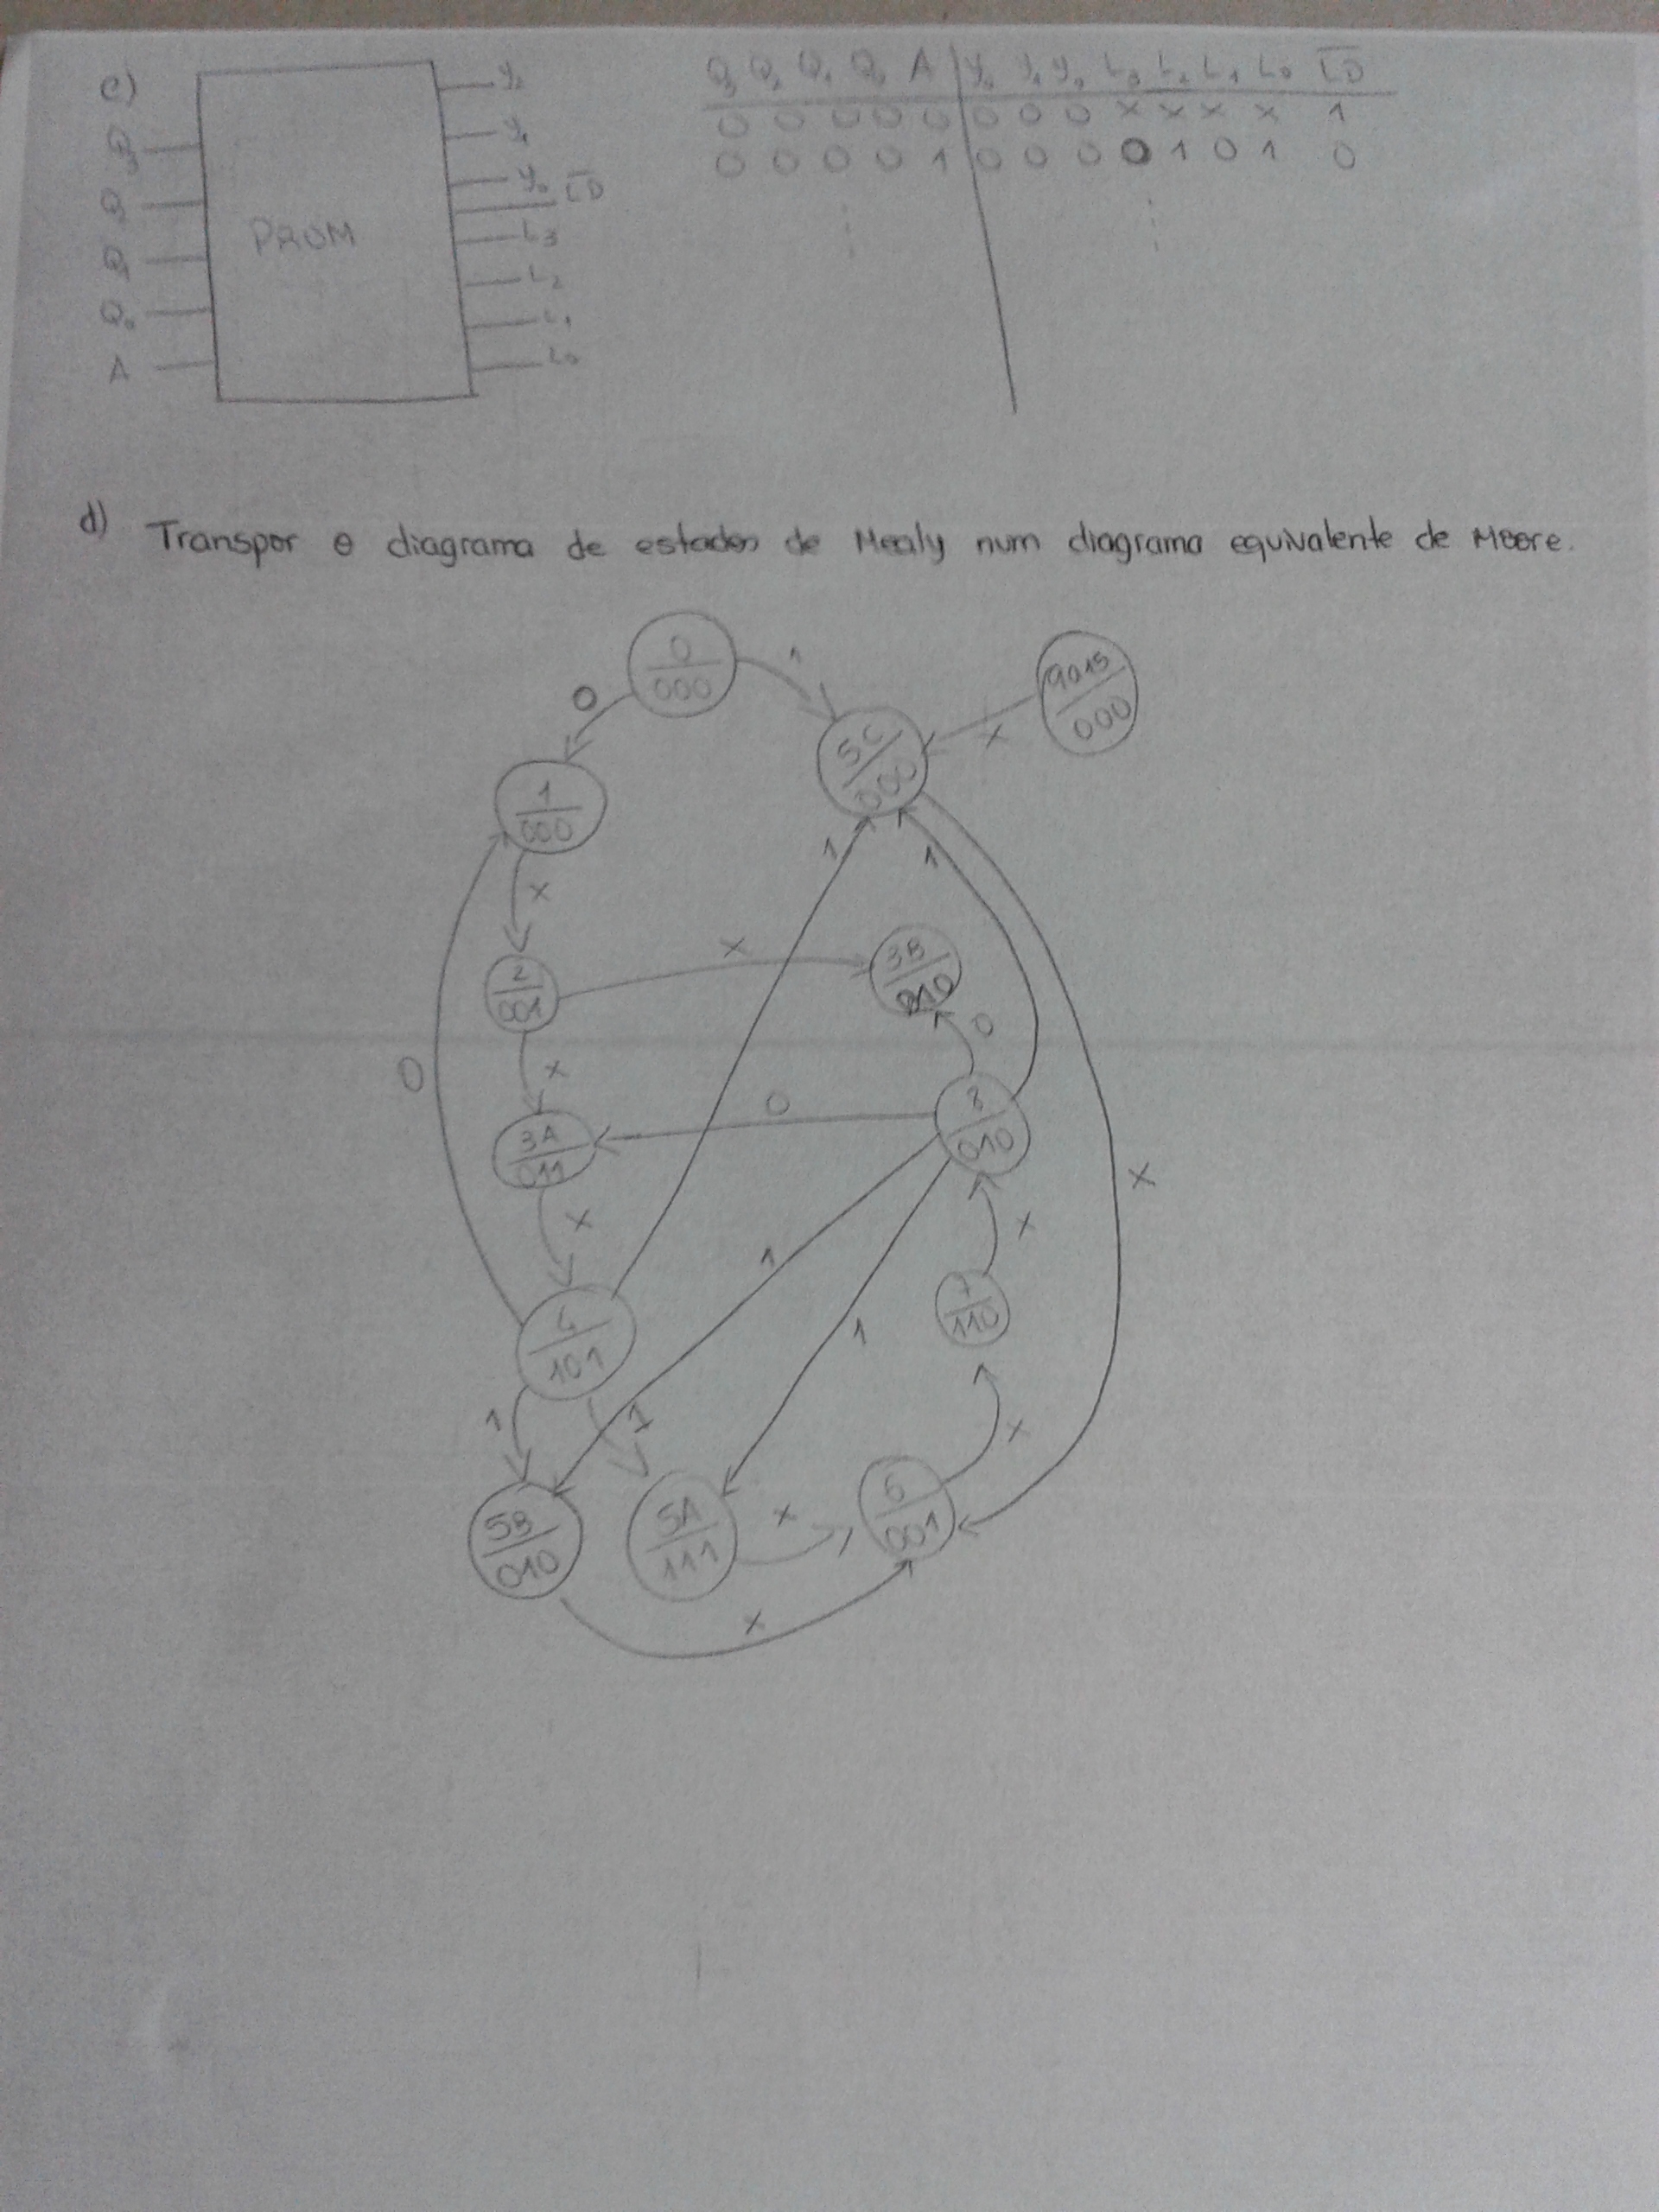 c)
Q₃
Q₂
Q₁
Q₀
A
PROM
y₂
y₁
y₀
L̅D̅
L₃
L₂
L₁
L₀
Q₃ Q₂ Q₁ Q₀ A y₂ y₁ y₀ L₃ L₂ L₁ L₀ L̅D̅
0 0 0 0 0 0 0 0 x x x x 1
0 0 0 0 1 0 0 0 0 1 0 1 0
d) Transpor o diagrama de estados de Mealy num diagrama equivalente de Moore.
0
000
0
1
9a15
000
x
5C
000
1
000
x
1
1
2
001
x
3B
010
0
x
0
3A
011
0
8
010
x
x
1
x
7
110
4
101
1
1
1
x
5B
010
5A
111
x
6
001
x